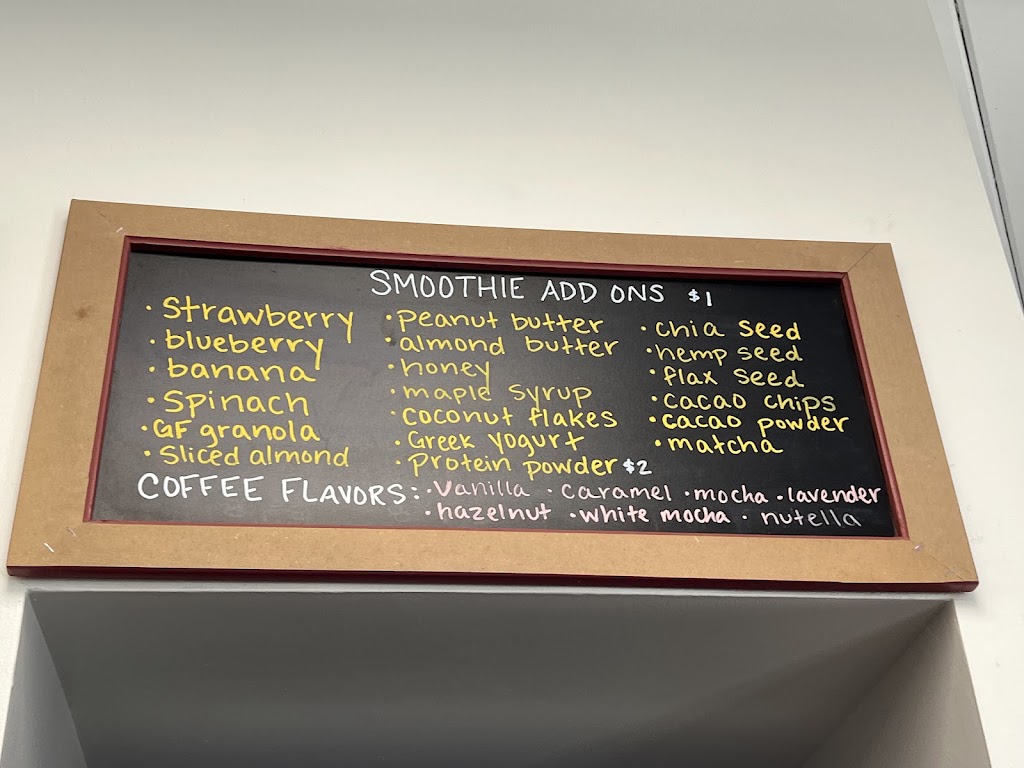 SMOOTHIE ADD ONS $1
· Strawberry
· blueberry
· banana
· Spinach
· GF granola
· Sliced almond
· Peanut butter
· almond butter
· honey
· maple syrup
· coconut flakes
· Greek yogurt
· Protein powder $2
· chia seed
· hemp seed
· flax seed
· cacao chips
· cacao powder
· matcha
COFFEE FLAVORS: · Vanilla · caramel · mocha · lavender
· hazelnut · white mocha · nutella